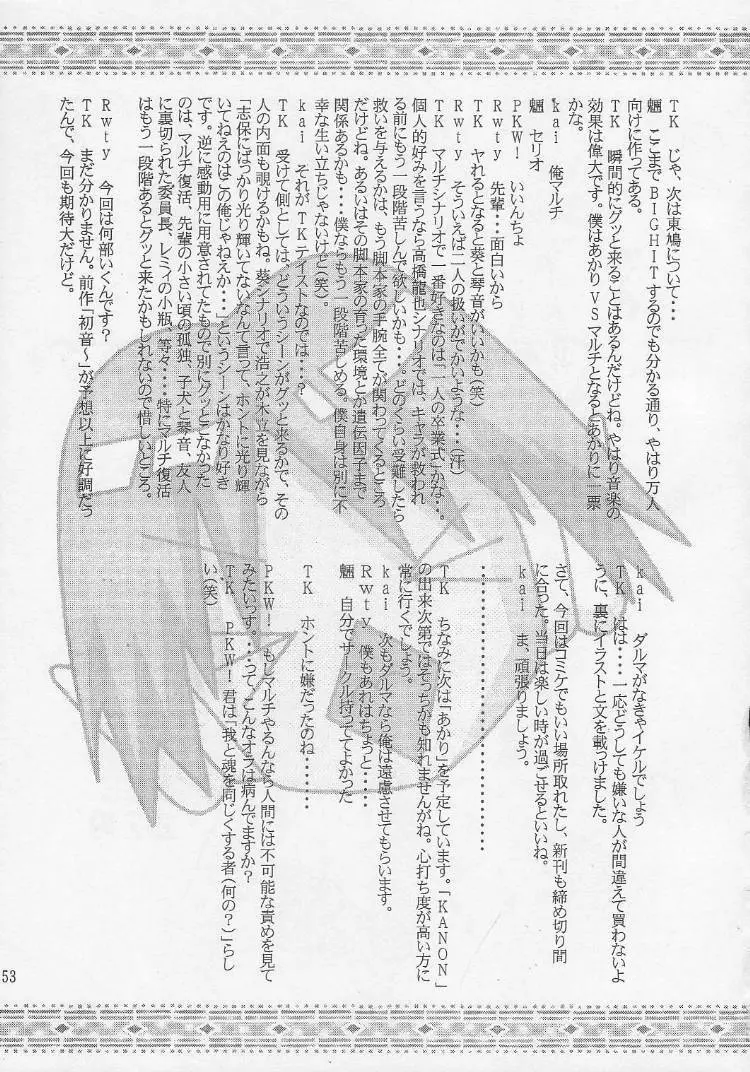 TK　じゃ、次は東鳩について・・・
魎　ここまでBIGHITするのでも分かる通り、やはり万人
向けに作ってある。
TK　瞬間的にグッと来ることはあるんだけどね。やはり音楽の
効果は偉大です。僕はあかりVSマルチとなるとあかりに一票
かな。
kai　俺マルチ
魎　セリオ
PKW!　いいんちょ
Rwty　先輩・・・面白いから
TK　ヤれるとなると葵と琴音がいいかも(笑)
Rwty　そういえば二人の扱いがでかいような・・・・(汗)
TK　マルチシナリオで一番好きなのは「二人の卒業式」かな・・。
個人的好みを言うなら高橋龍也シナリオでは、キャラが救われ
る前にもう一段階苦しんで欲しいかも・・・。どのくらい受難したら
救いを与えるかは、もう脚本家の手腕全てが関わってくるところ
だけどね。あるいはその脚本家の育った環境とか遺伝因子まで
関係あるかも・・・僕ならもう一段階苦しめる。僕自身は別に不
幸な生い立ちじゃないけど(笑)。
kai　それがTKテイストなのでは・・・・?
TK　受けて側としては、どういうシーンがグッと来るかで、その
人の内面も覗けるかもね。葵シナリオで浩之が木立を見ながら
「志保にばっかり光り輝いてないなんて言って、ホントに光り輝
いてねえのはこの俺じゃねえか・・・」というシーンはかなり好き
です。逆に感動用に用意されてたもので別にグッとこなかった
のは、マルチ復活、先輩の小さい頃の孤独、子犬と琴音、友人
に裏切られた委員長、レミィの小瓶、等々・・・・特にマルチ復活
はもう一段階あるとグッと来たかもしれないので惜しいところ。
Rwty　今回は何部いくんです?
TK　まだ分かりません。前作「初音～」が予想以上に好調だっ
たんで、今回も期待大だけど。
kai　ダルマがなきゃイケルでしょう
TK　はは・・・・一応どうしても嫌いな人が間違えて買わないよ
うに、裏にイラストと文を載っけました。
さて、今回はコミケでもいい場所取れたし、新刊も締め切り間
に合った。当日は楽しい時が過ごせるといいね。
kai　ま、頑張りましょう。
・・・・・・・・・・・・・・・・・・・・・・・・・・
・・・・・・・・・・・・・・・・・・・・・・・・・・
TK　ちなみに次は「あかり」を予定しています。「KANON」
の出来次第ではそっちかも知れませんがね。心打ち度が高い方に
常に行くでしょう。
kai　次もダルマなら俺は遠慮させてもらいます。
Rwty　僕もあれはちょっと・・・・
魎　自分でサークル持っててよかった
TK　ホントに嫌だったのね・・・・・
PKW!　もしマルチやるんなら人間には不可能な責めを見て
みたいっす。・・・・って、こんなオラは病んでますか?
TK　PKW!君は「我と魂を同じくする者(何の?)」らし
い(笑)
53